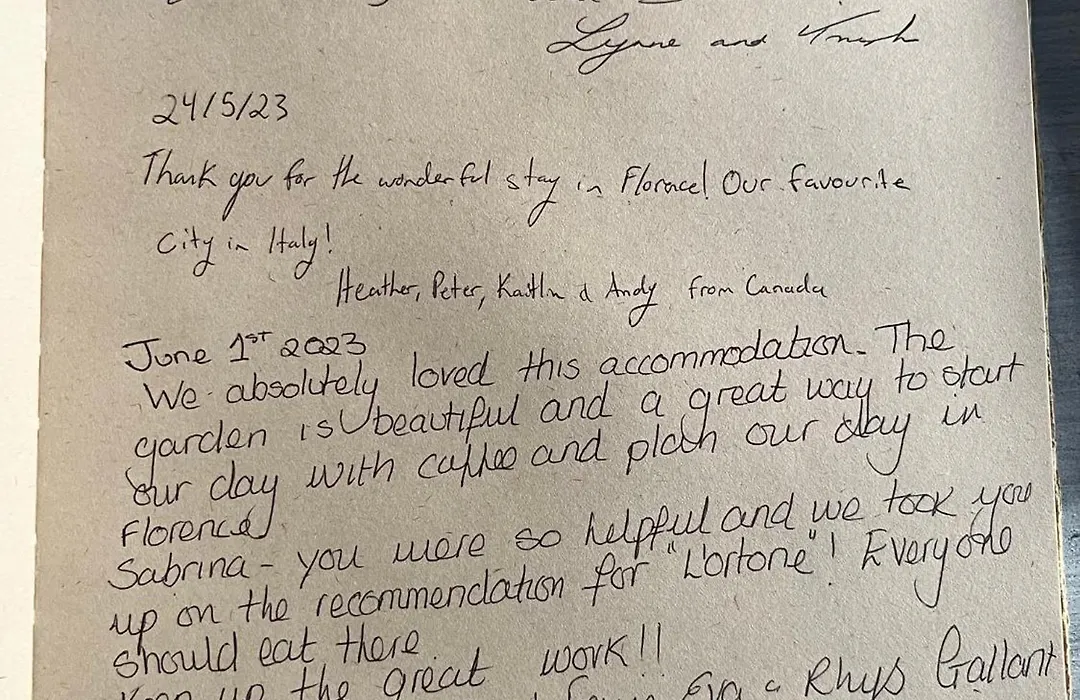 Lynne and Trish
24/5/23
Thank you for the wonderful stay in Florence! Our favourite
City in Italy!
Heather, Peter, Kaitlin & Andy from Canada
June 1ST 2023
We absolutely loved this accommodation. The
garden is beautiful and a great way to start
our day with coffee and plan our day in
Florence
Sabrina - you were so helpful and we took you
up on the recommendation for "L'ortone"! Everyone
should eat there
Keep up the great work!!
Rhys Gallant